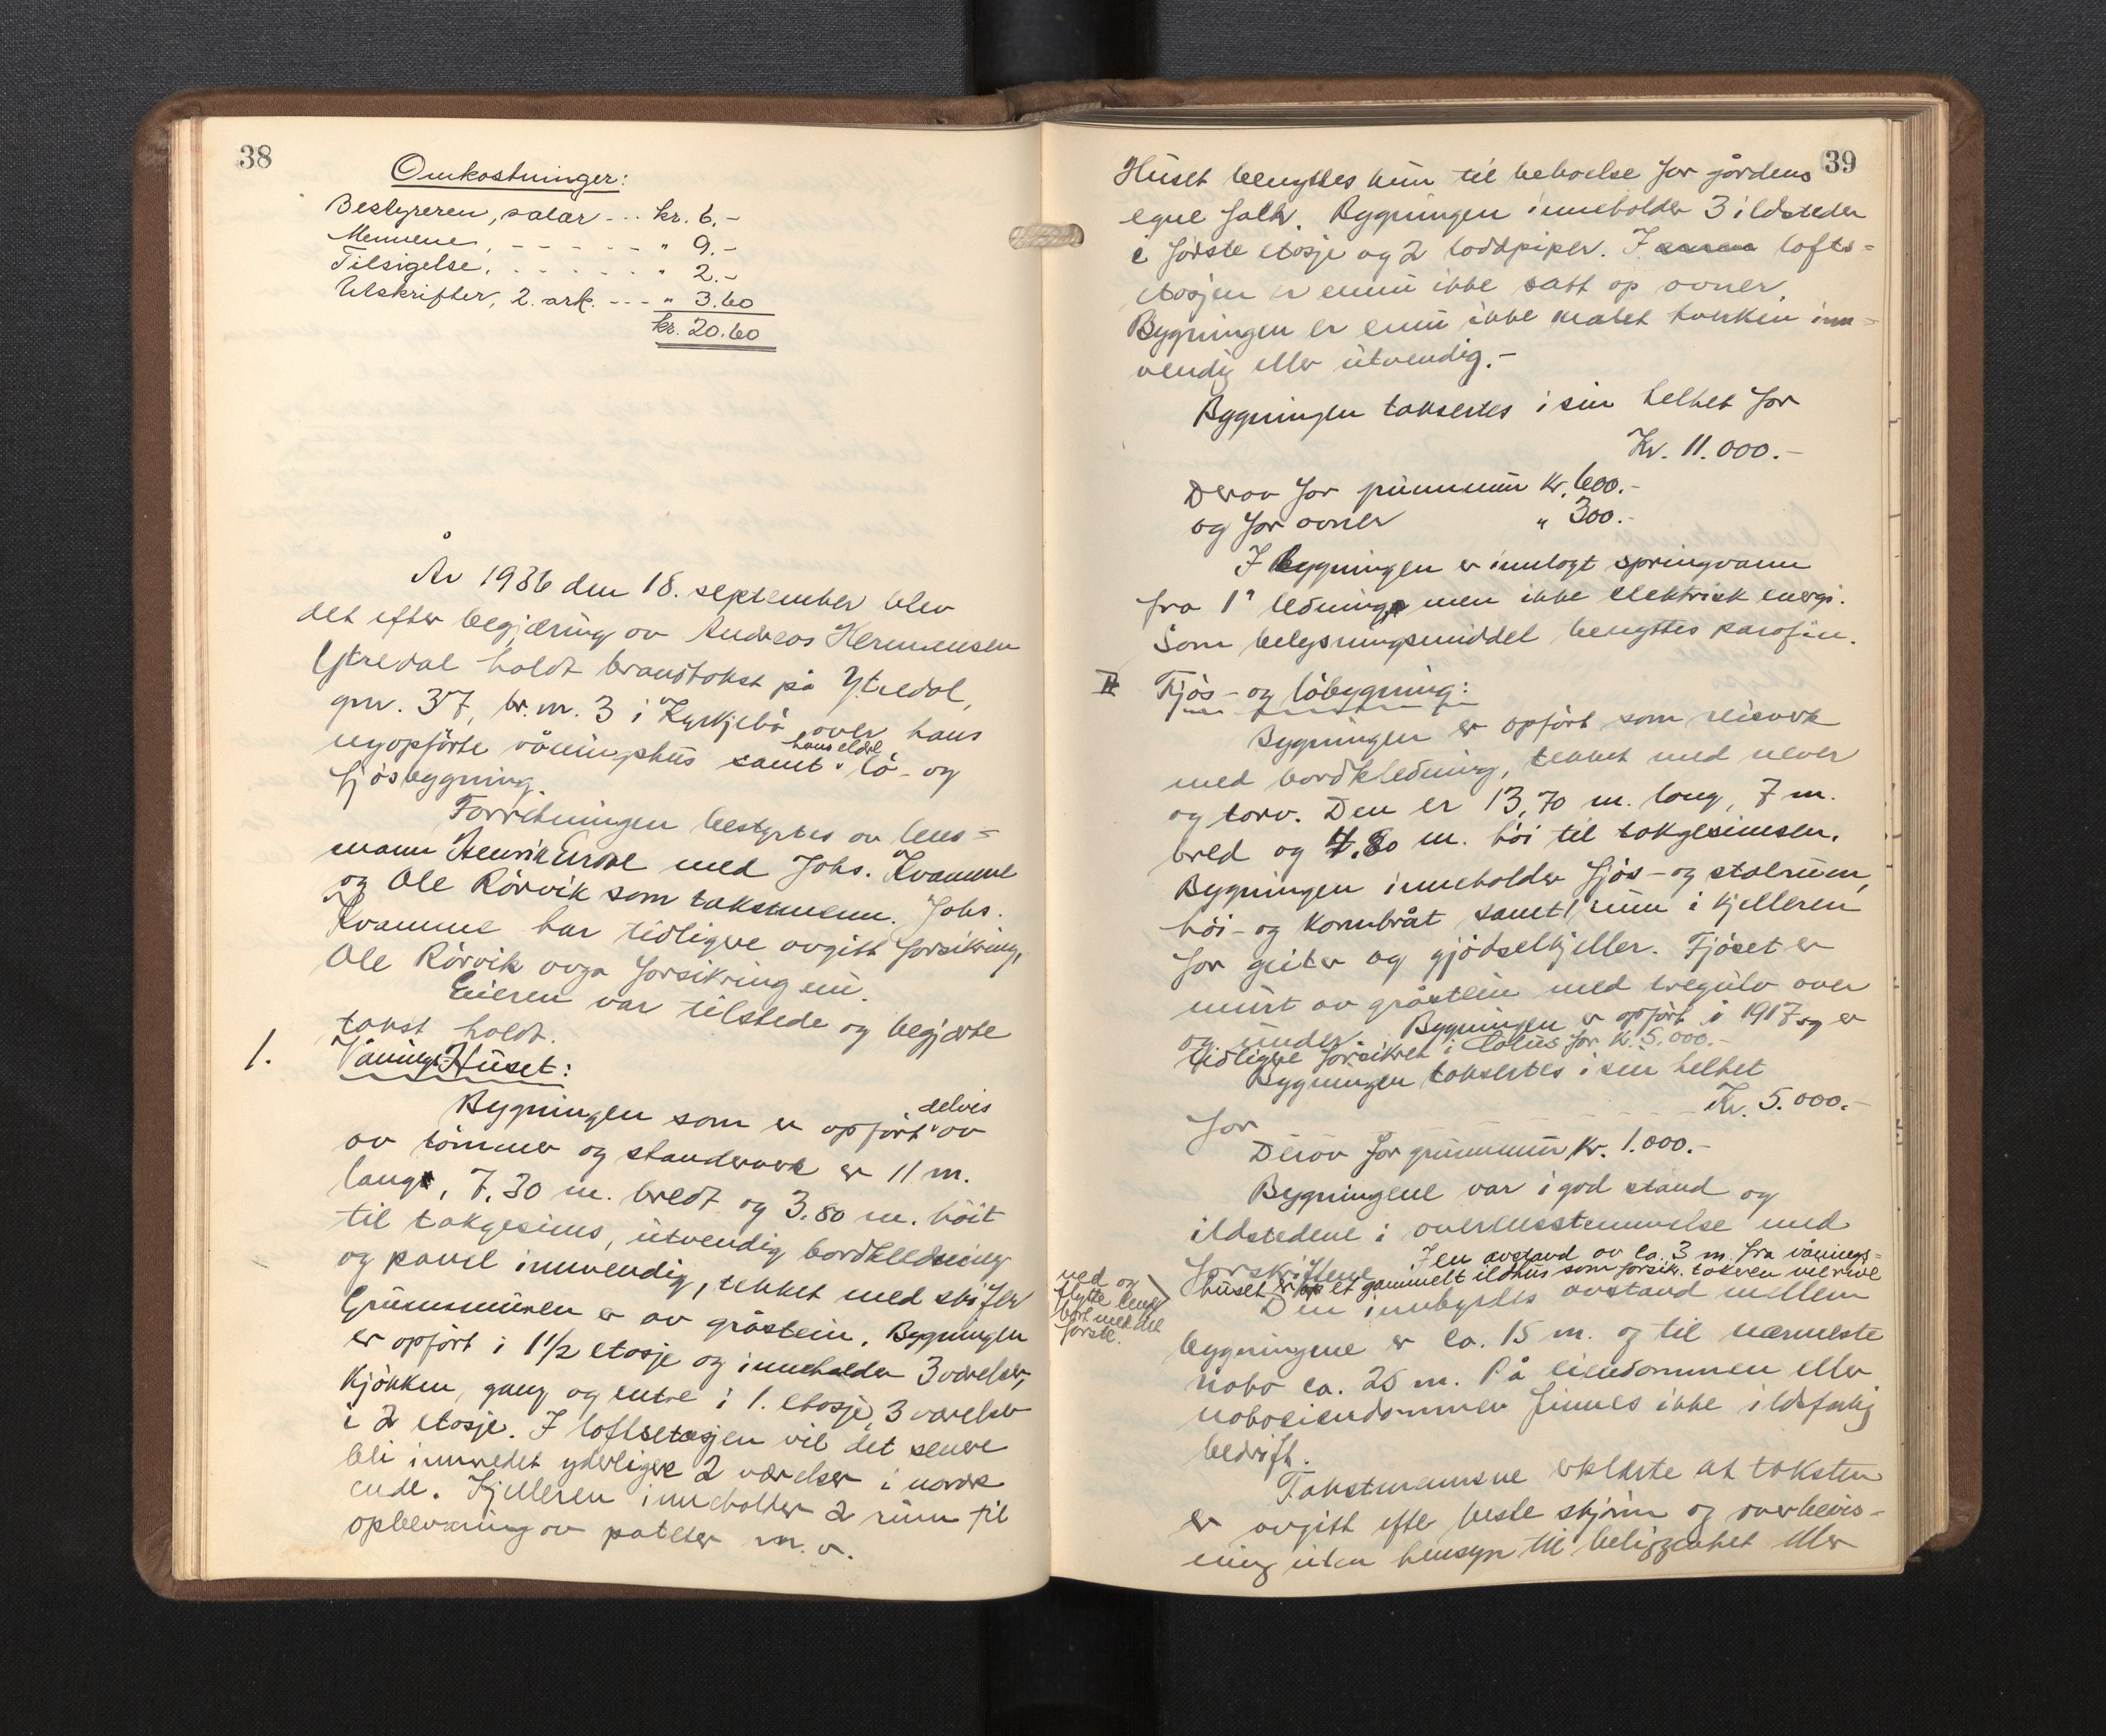 38
Omkostninger:
Bestyreren, salar ... kr. 6.-
Mennene, - - - - - - " 9.-
Tilsigelse, . . . . . . " 2.-
Utskrifter, 2. ark. - - - " 3.60
kr. 20.60
År 1936 den 18. september blev
det efter begjæring av Andreas Hermansen
Ytredal holdt branntakst på Ytredal,
gnr. 37, br.nr. 3 i Kyrkjebö over hans
nyopförte våningshus samt hans eldre lö- og
fjösbygning.
Forretningen bestyrtes av lens=
mann Henrik med Johs. Kvamme
og Ole Rörvik som takstmenn. Johs.
Kvamme har tidligere avgitt forsikring,
Ole Rörvik avga forsikring nu.
Eieren var tilstede og begjærte
takst holdt.
1. Våningshuset:
Bygningen som er opfört delvis av
av tömmer og standerverk er 11 m.
langt, 7,30 m. bredt og 3.80 m. höit
til takgesims, utvendig bordkledning
og panel innvendig, tekket med skifer
Grunnmuren er av gråstein. Bygningen
er opfört i 1 1/2 etasje og inneholder 3 værelser,
kjökken, gang og entre i 1. etasje, 3 værelser
i 2 etasje. I loftsetasjen vil det senere
bli innredet yderligere 2 værelser i nordre
ende. Kjelleren inneholder 2 rum til
opbevaring av poteter m. v.
39
Huset benyttes kun til beboelse for gårdens
egne folk. Bygningen inneholder 3 ildsteder
i förste etasje og 2 loddpiper. I lofts=
etasjen er ennu ikke satt op ovner.
Bygningen er ennu ikke malet hverken inn=
vendig eller utvendig.-
Bygningen takseres i sin helhet for
Kr. 11.000.-
Derav for grunnmur kr. 600.-
og for ovner " 300.-
I bygningen er innlagt springvann
fra 1" ledning men ikke elektrisk energi.
Som belysningsmiddel benyttes parafin.
II Fjös- og löbygning:
Bygningen er opfört som reisverk
med bordkledning, tekket med never
og torv. Den er 13,70 m. lang, 7 m.
bred og 4.80 m. höi til takgesimsen.
Bygningen inneholder fjös- og stalrum,
höi- og kornbråt samt rum i kjelleren
for geiter og gjödselkjeller. Fjöset er
murt av gråstein med tregulv over
og under. Bygningen er opfört i 1917 og er
tidligere forsikret i for kr. 5.000.-
Bygningen takseres i sin helhet
for - - - - - Kr. 5.000.-
Derav for grunnmur kr. 1.000.-
Bygningene var i god stand og
ildstedene i overensstemmelse med
forskriftene. I en avstand av ca. 3 m. fra vånings=
huset er et gammelt ildhus som forsik. takeren vil rive
ned og
flytte lenger
bort med det
förste.
Den innbyrdes avstand mellem
bygningene er ca. 15 m. og til nærmeste
nabo ca. 25 m. På eiendommen eller
naboeiendommer finnes ikke ildsfarlig
bedrift.
Takstmennene erklærte at taksten
er avgitt efter beste skjönn og overbevis=
ning uten hensyn til beliggenhet eller